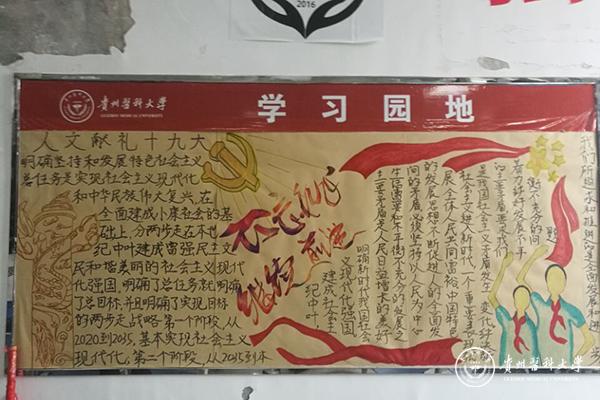 2016
贵州医科大学
GUIZHOU MEDICAL UNIVERSITY
学习园地
人文献礼十九大
明确坚持和发展特色社会主义
总任务是实现社会主义现代化
和中华民族伟大复兴,在
全面建成小康社会的基
础上,分两步走在本世
纪中叶建成富强民主文
民和增美丽的社会主义现代
化强国,明确了总任务就明确
了总目标,并且明确了实现目标
的两步走战略.第一个阶段,从
2020到2035,基本实现社会主义
现代化,第二个阶段,从2035到本
不忘初心
继续前进
我们所追求和推进的是全面发展和进步
题
衡不充分的问
着力解决好发展不平
的主要矛盾要求我们
是我国社会主义矛盾发生变化
社会主义进入新时代,一个重要表现
展、全体人民共同富裕,中国特色
的发展思想,不断促进人的全面发
间的矛盾,必须坚持以人民为中心
生活需要和不平衡不充分的发展之
主要矛盾是人民日益增长的美好
明确新时代我国社会
义现代化强国
建成社会主
纪中叶,
贵州医科大学